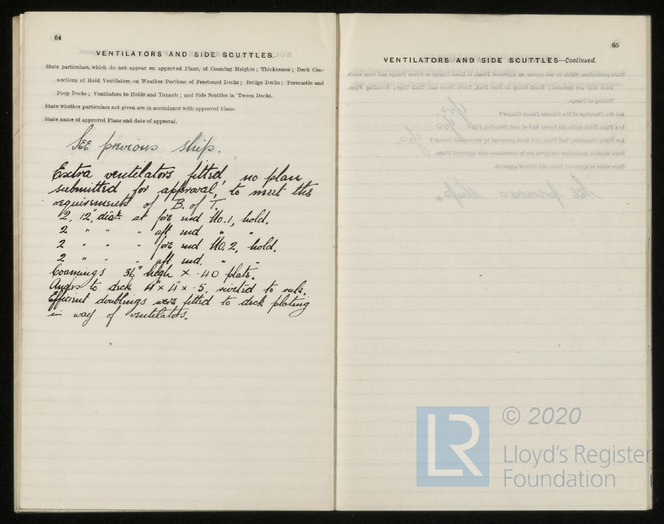 64
VENTILATORS AND SIDE SCUTTLES.
State particulars, which do not appear on approved Plans, of Coaming Heights; Thicknesses; Deck Con-
nections of Hold Ventilators on Weather Portions of Freeboard Decks; Bridge Decks; Forecastle and
Poop Decks; Ventilators to Holds and Tunnels; and Side Scuttles in 'Tween Decks.
State whether particulars not given are in accordance with approved Plans.
State name of approved Plans and date of approval.
See previous ship.
Extra ventilators fitted, no plan
submitted for approval, to meet the
requirements of B. of T.
2, 12" diatr at fore end No. 1, hold.
2 " " " aft end " "
2 " " " fore end No. 2, hold.
2 " " " aft end. " "
Coamings 36" high × .40 plate.
Angles to deck 4" × 4" × .5, riveted to
Efficient doublings were fitted to deck plating
in way of ventilators.
65
VENTILATORS AND SIDE SCUTTLES—Continued.
LR
© 2020
Lloyd's Register
Foundation